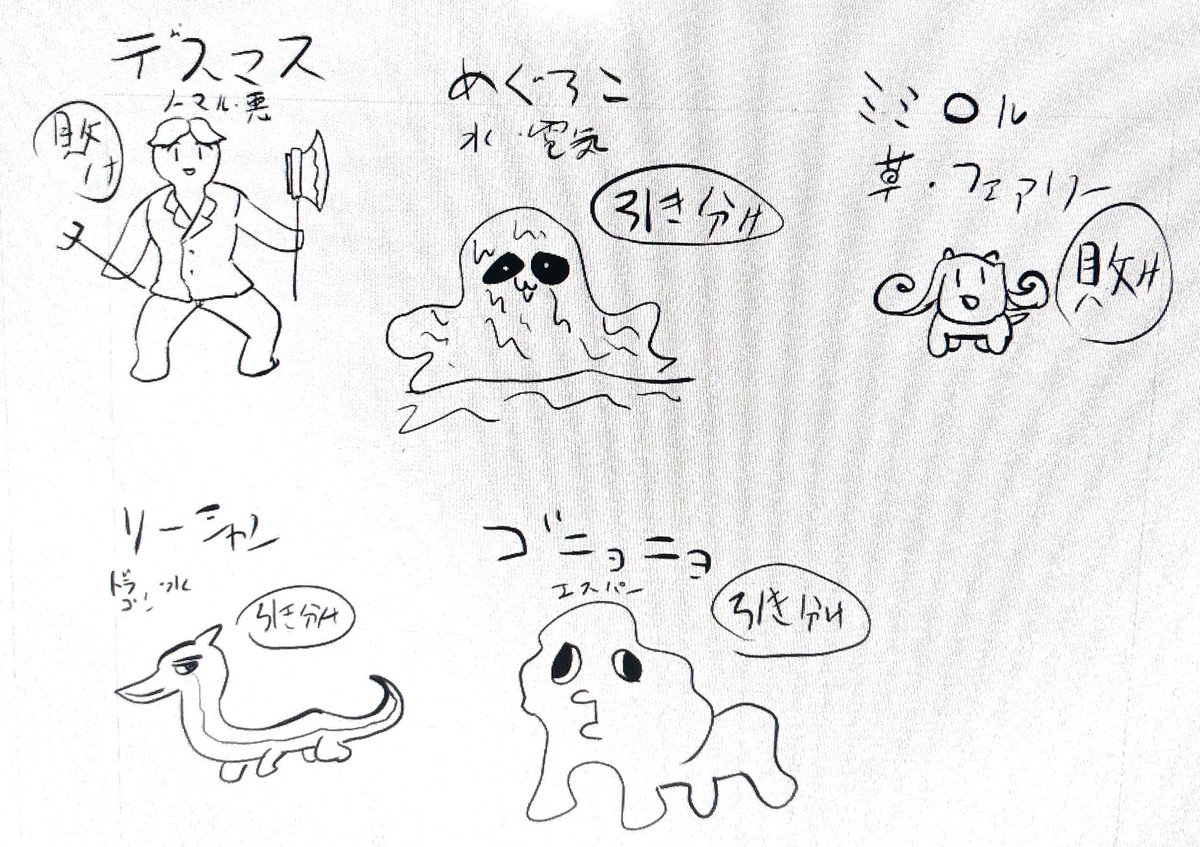 デスマス
ノーマル・悪
敗け
めぐろこ
水・電気
引き分け
ミミロル
草・フェアリー
敗け
リーシャン
ドラゴン・水
引き分け
ゴニョニョ
エスパー
引き分け